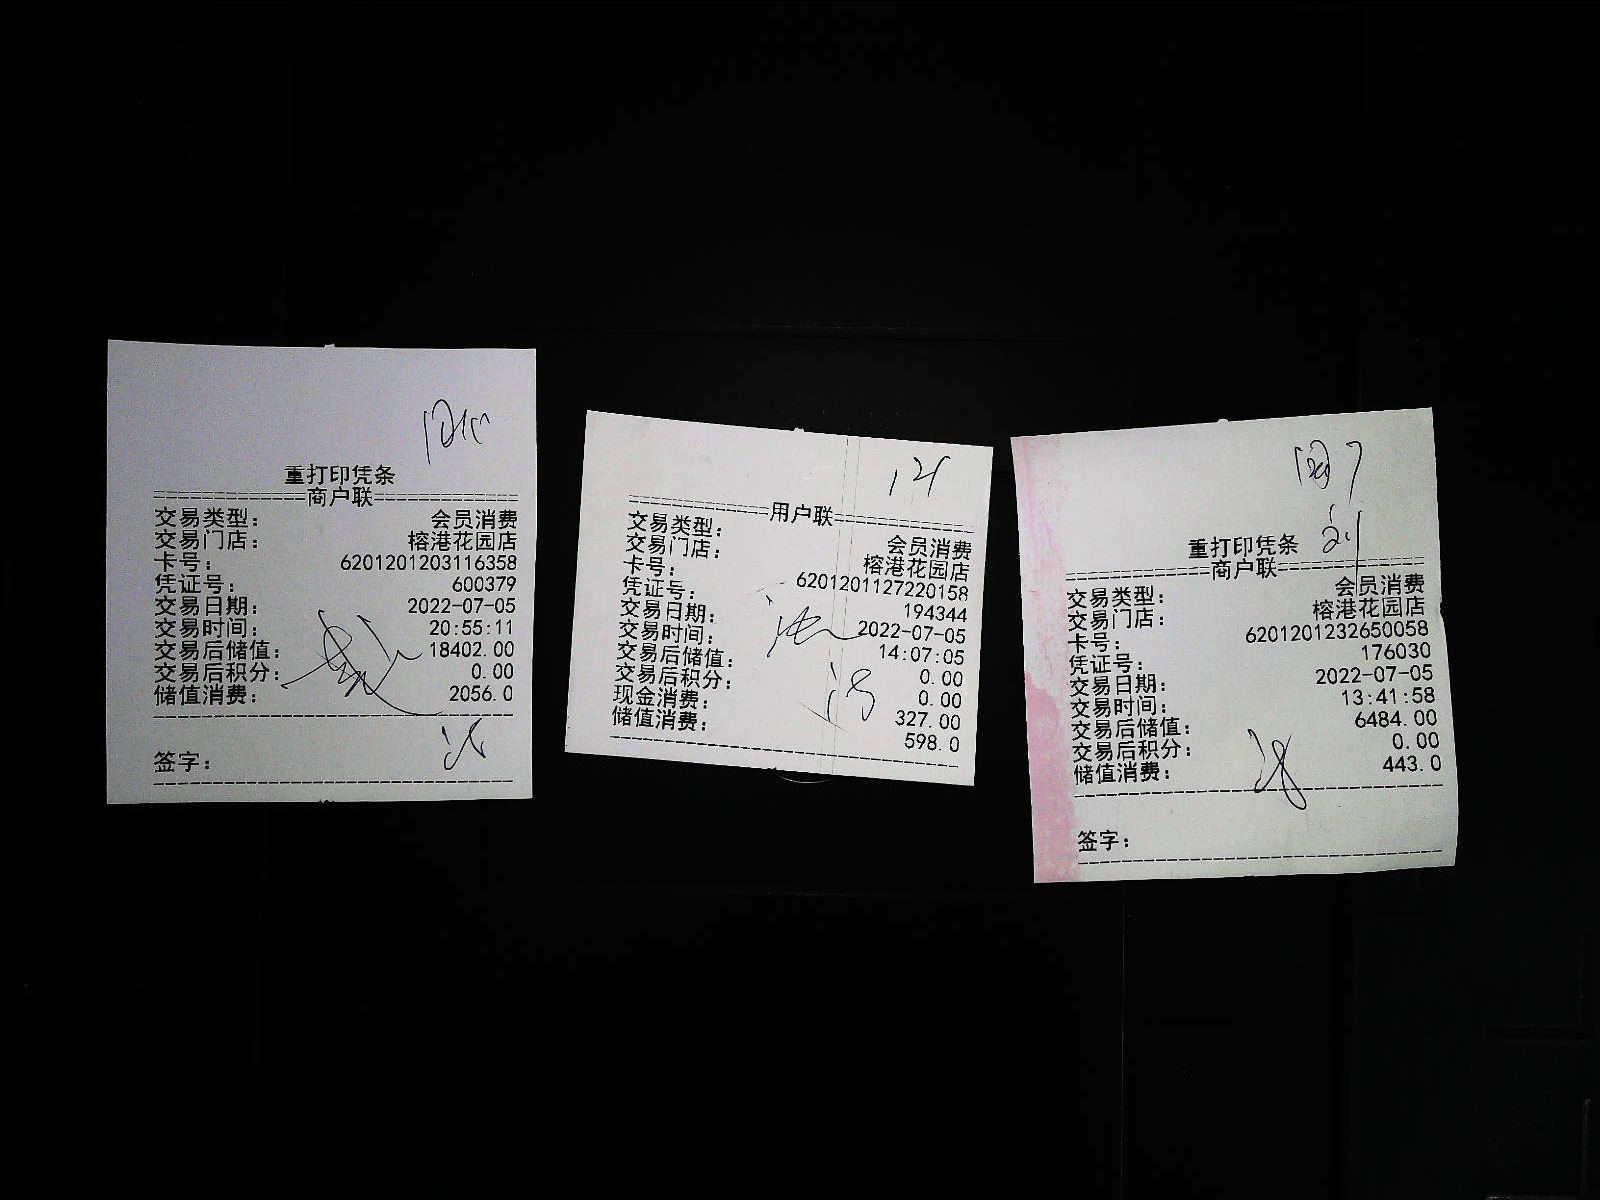 重打印凭条
商户联
交易类型： 会员消费
交易门店： 榕港花园店
卡号： 6201201203116358
凭证号： 600379
交易日期： 2022-07-05
交易时间： 20:55:11
交易后储值： 18402.00
交易后积分： 0.00
储值消费： 2056.0
签字：
用户联
交易类型： 会员消费
交易门店： 榕港花园店
卡号： 6201201127220158
凭证号： 194344
交易日期： 2022-07-05
交易时间： 14:07:05
交易后储值： 0.00
交易后积分： 0.00
现金消费： 327.00
储值消费： 598.0
重打印凭条
商户联
交易类型： 会员消费
交易门店： 榕港花园店
卡号： 6201201232650058
凭证号： 176030
交易日期： 2022-07-05
交易时间： 13:41:58
交易后储值： 6484.00
交易后积分： 0.00
储值消费： 443.0
签字：